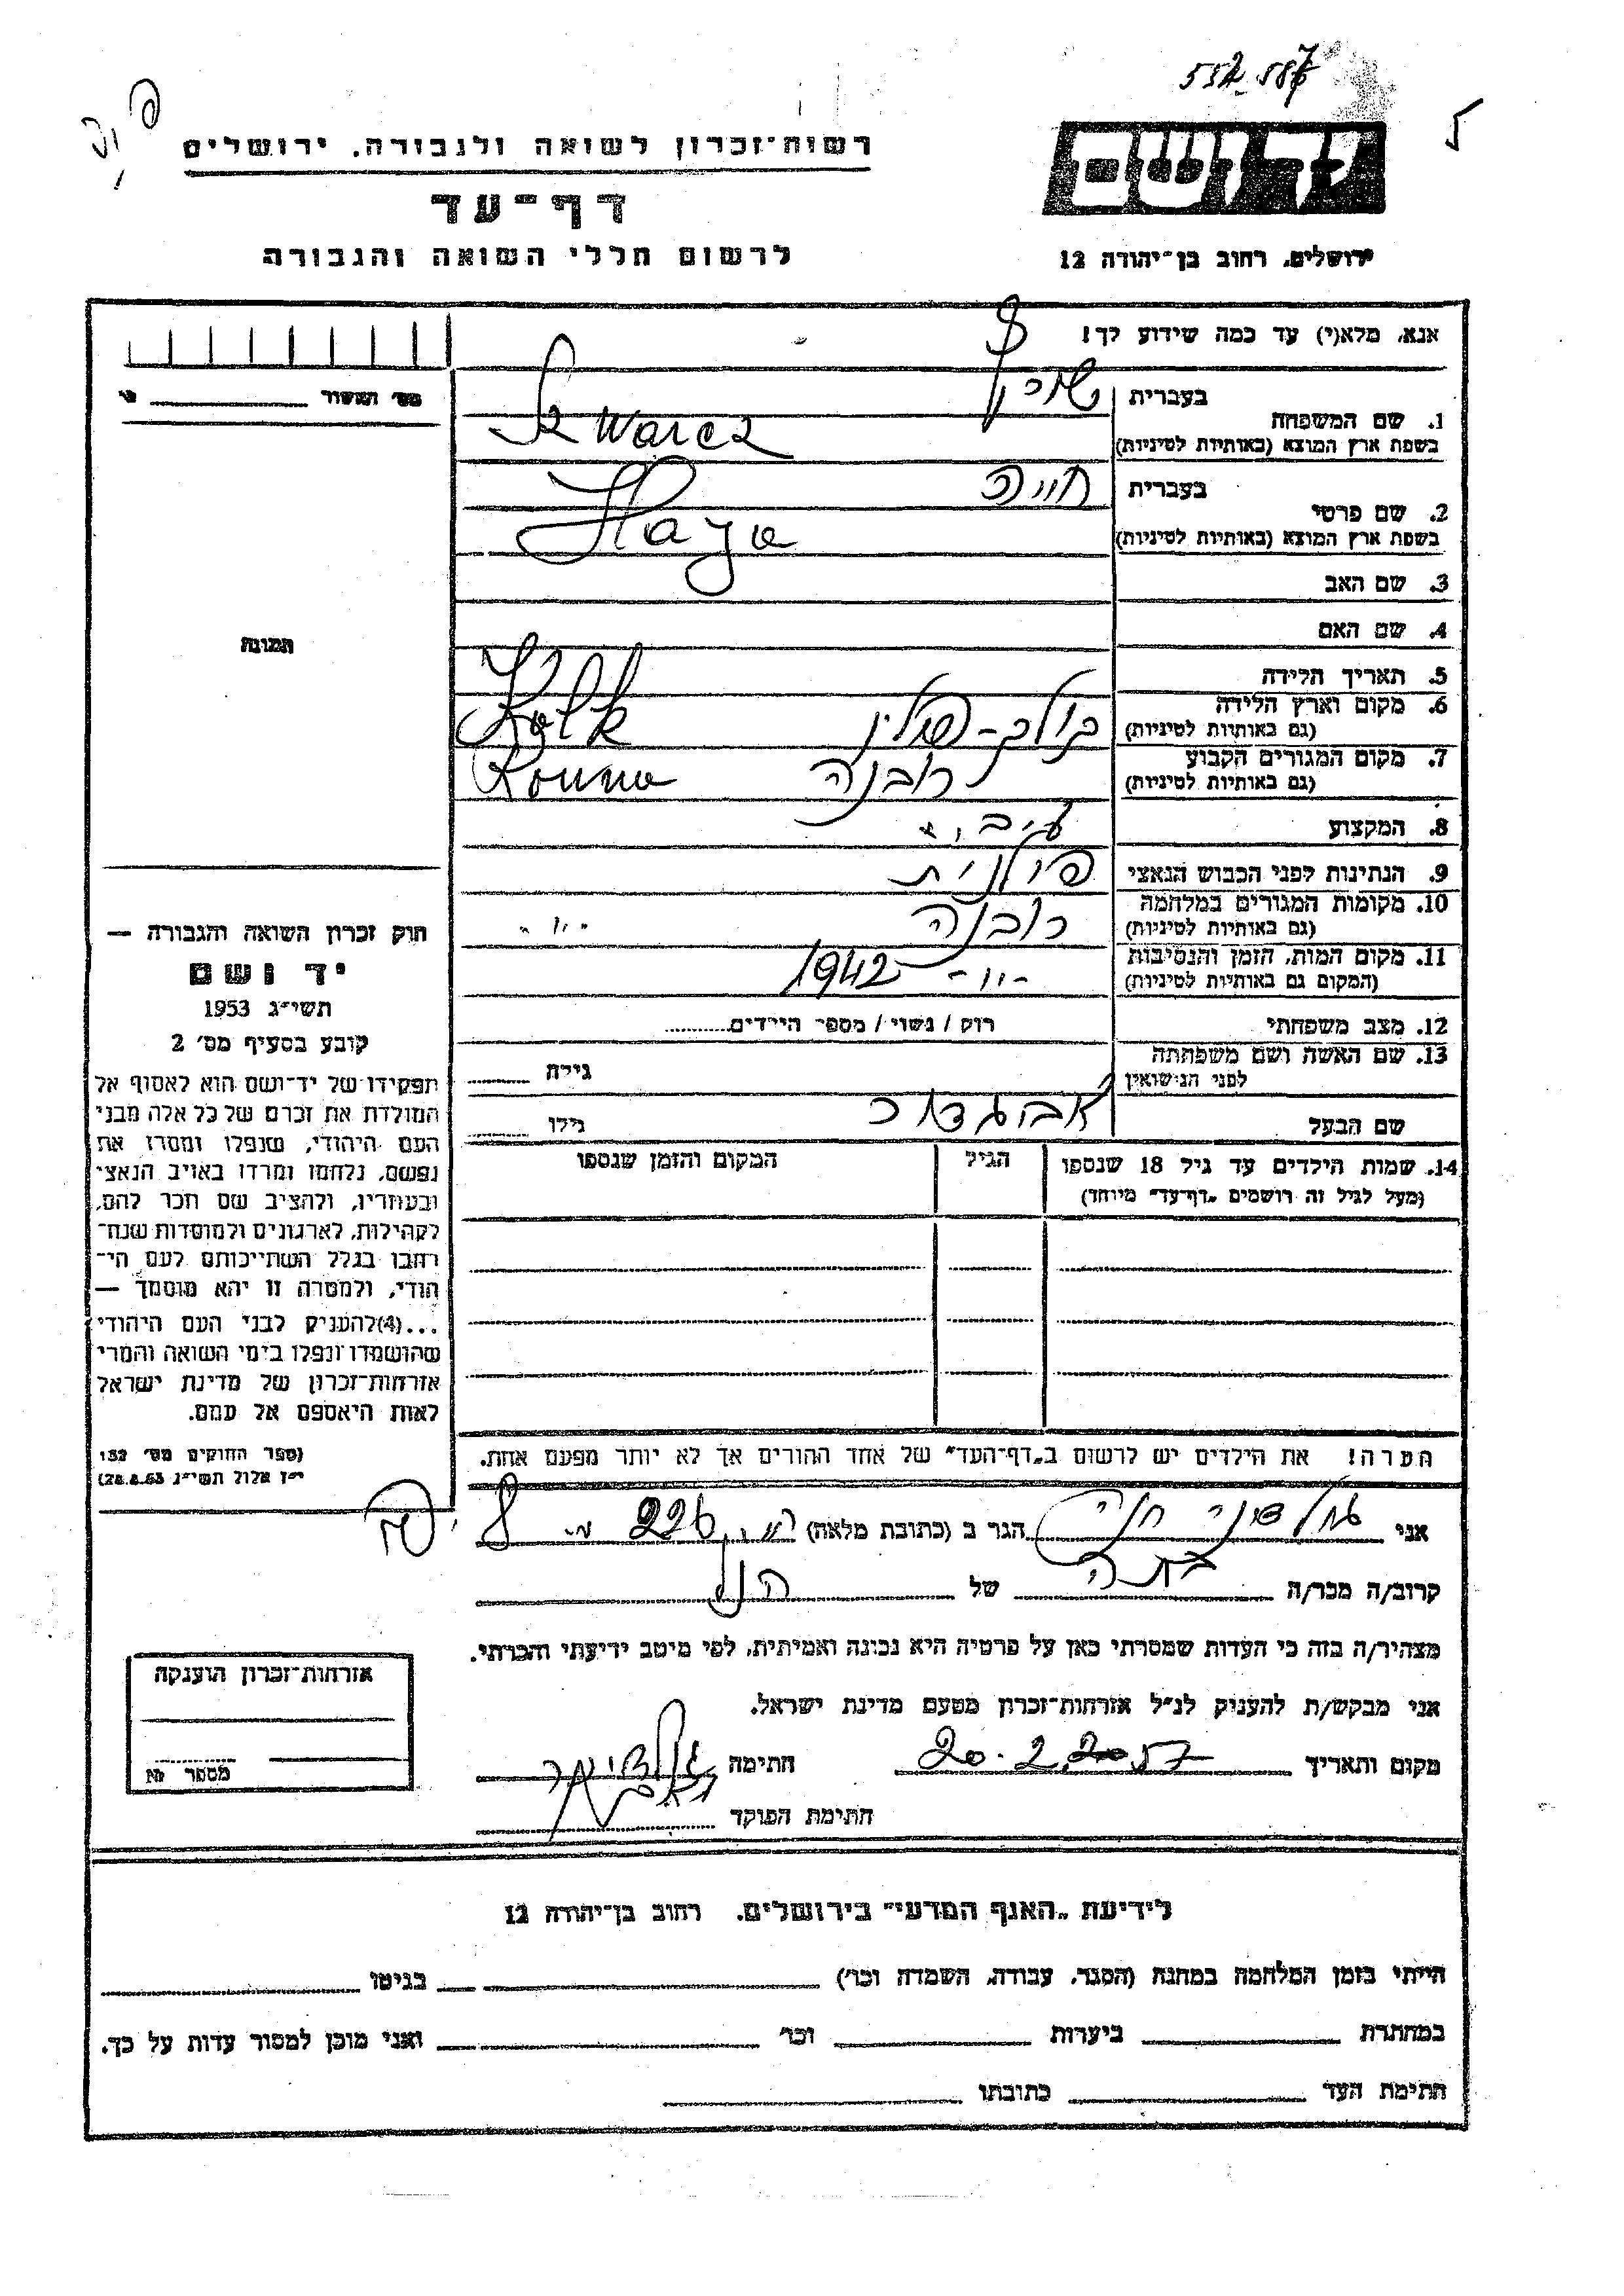 552-587
רשות-זכרון לשואה ולגבורה, ירושלים
דף-עד
לרשום חללי השואה והגבורה
יד ושם
ירושלים, רחוב בן-יהודה 12
אנא, מלא(י) עד כמה שידוע לך!
מס' האשור
1. שם המשפחה
בעברית
בשפת ארץ המוצא (באותיות לטיניות)
Szwarcz
2. שם פרטי
בעברית חיה
בשפת ארץ המוצא (באותיות לטיניות) Haya
3. שם האב
4. שם האם
תמונה
5. תאריך הלידה
6. מקום וארץ הלידה
(גם באותיות לטיניות) קולק-פולין Kolk
7. מקום המגורים הקבוע
(גם באותיות לטיניות) רובנה Rowne
8. המקצוע
9. הנתינות לפני הכבוש הנאצי פולנית
10. מקומות המגורים במלחמה
(גם באותיות לטיניות) רובנה -"-
11. מקום המות, הזמן והנסיבות
(המקום גם באותיות לטיניות) -"- 1942
12. מצב משפחתי רוק / נשוי / מספר הילדים
13. שם האשה ושם משפחתה
לפני הנישואין
גילה
שם הבעל
גילו
14. שמות הילדים עד גיל 18 שנספו
(מעל לגיל זה רושמים "דף-עד" מיוחד)
הגיל
המקום והזמן שנספו
חוק זכרון השואה והגבורה —
יד ושם
תשי"ג 1953
קובע בסעיף מס' 2
תפקידו של יד-ושם הוא לאסוף אל
המולדת את זכרם של כל אלה מבני
העם היהודי, שנפלו ומסרו את
נפשם, נלחמו ומרדו באויב הנאצי
ובעוזריו, ולהציב שם וזכר להם,
לקהילות, לארגונים ולמוסדות שנח-
רחבו בגלל השתייכותם לעם הי-
הודי, ולמטרה זו יהא מוסמך —
...(4)להעניק לבני העם היהודי
שהושמדו ונפלו בימי השואה והמרי
אזרחות-זכרון של מדינת ישראל
לאות היאספם אל עמם.
(ספר החוקים מס' 132
י"ז אלול תשי"ג 28.8.53)
הערה! את הילדים יש לרשום ב"דף-העד" של אחד ההורים אך לא יותר מפעם אחת.
אני
הגר ב (כתובת מלאה)
קרוב/ה מכר/ה
של
מצהיר/ה בזה כי העדות שמסרתי כאן על פרטיה היא נכונה ואמיתית, לפי מיטב ידיעתי והכרתי.
אני מבקש/ת להעניק לנ"ל אזרחות-זכרון מטעם מדינת ישראל.
מקום ותאריך 20.2.57 חתימה
חתימת הפוקד
אזרחות-זכרון הוענקה
מספר №
לידיעת "האגף המדעי" בירושלים, רחוב בן-יהודה 12
הייתי בזמן המלחמה במחנה (הסגר, עבודה, השמדה וכו') בגיטו
במחתרת ביערות וכו' ואני מוכן למסור עדות על כך.
חתימת העד כתובתו